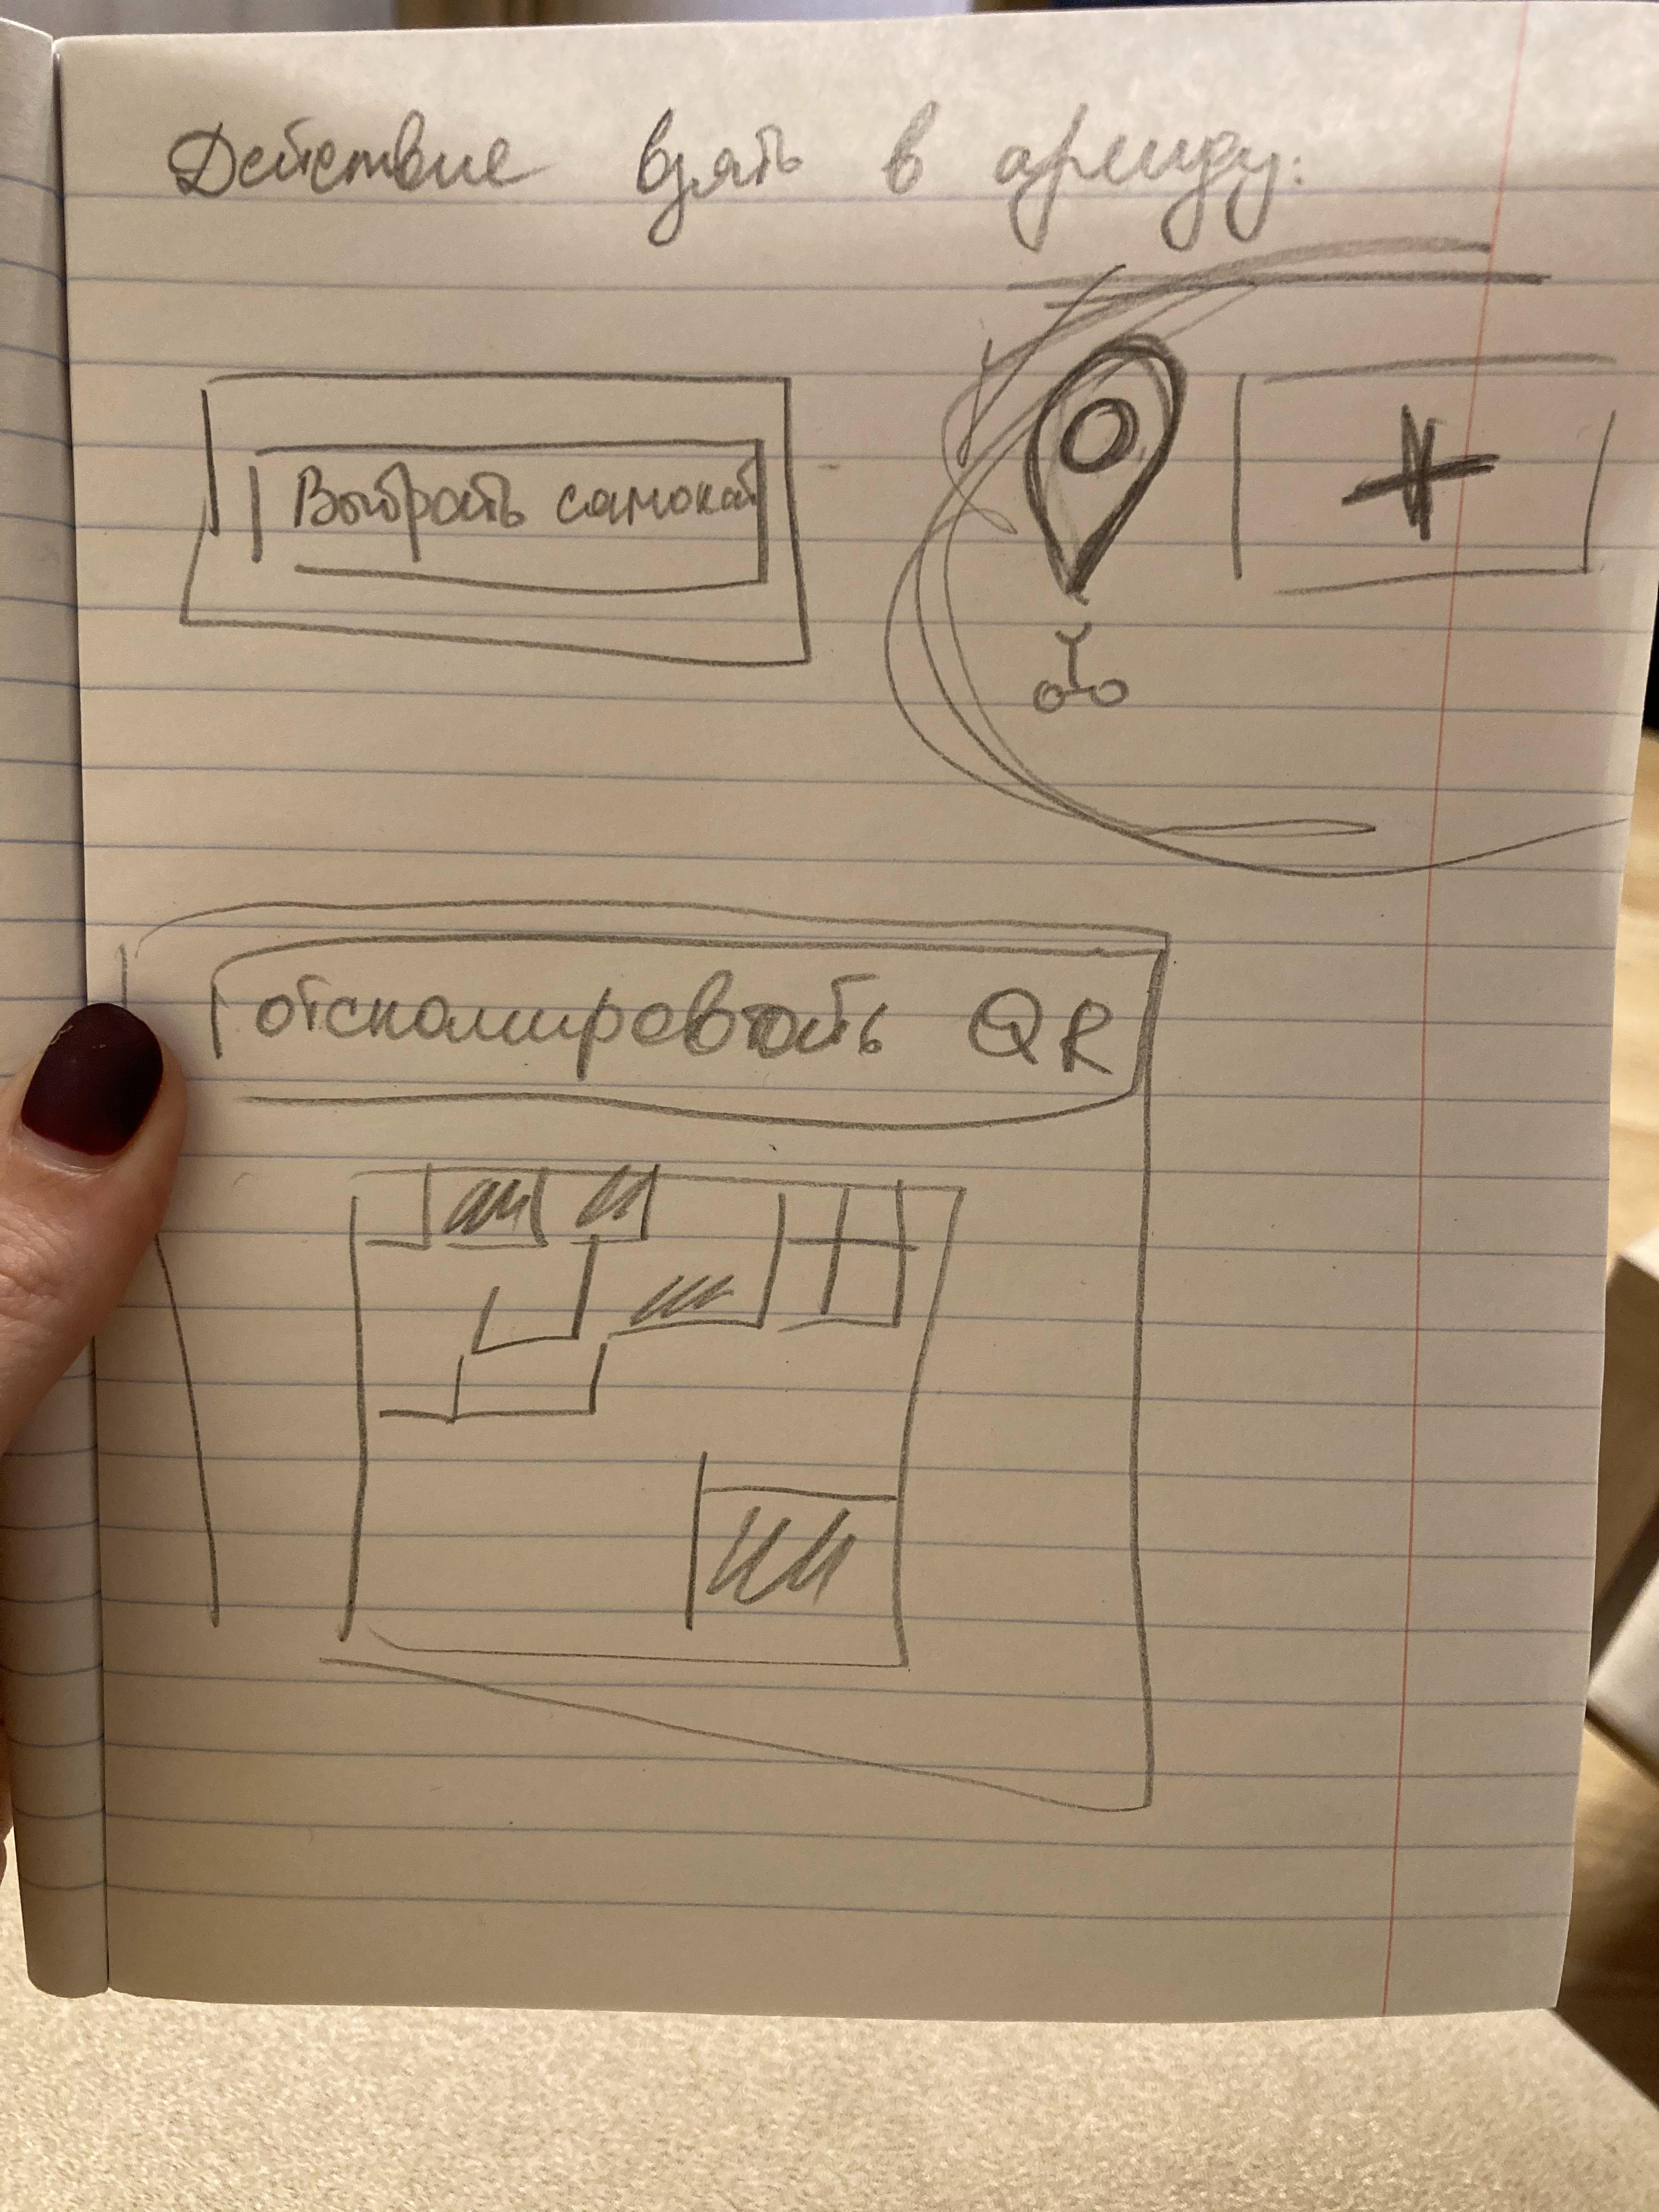 Действие взять в аренду:
Выбрать самокат
отсканировать QR